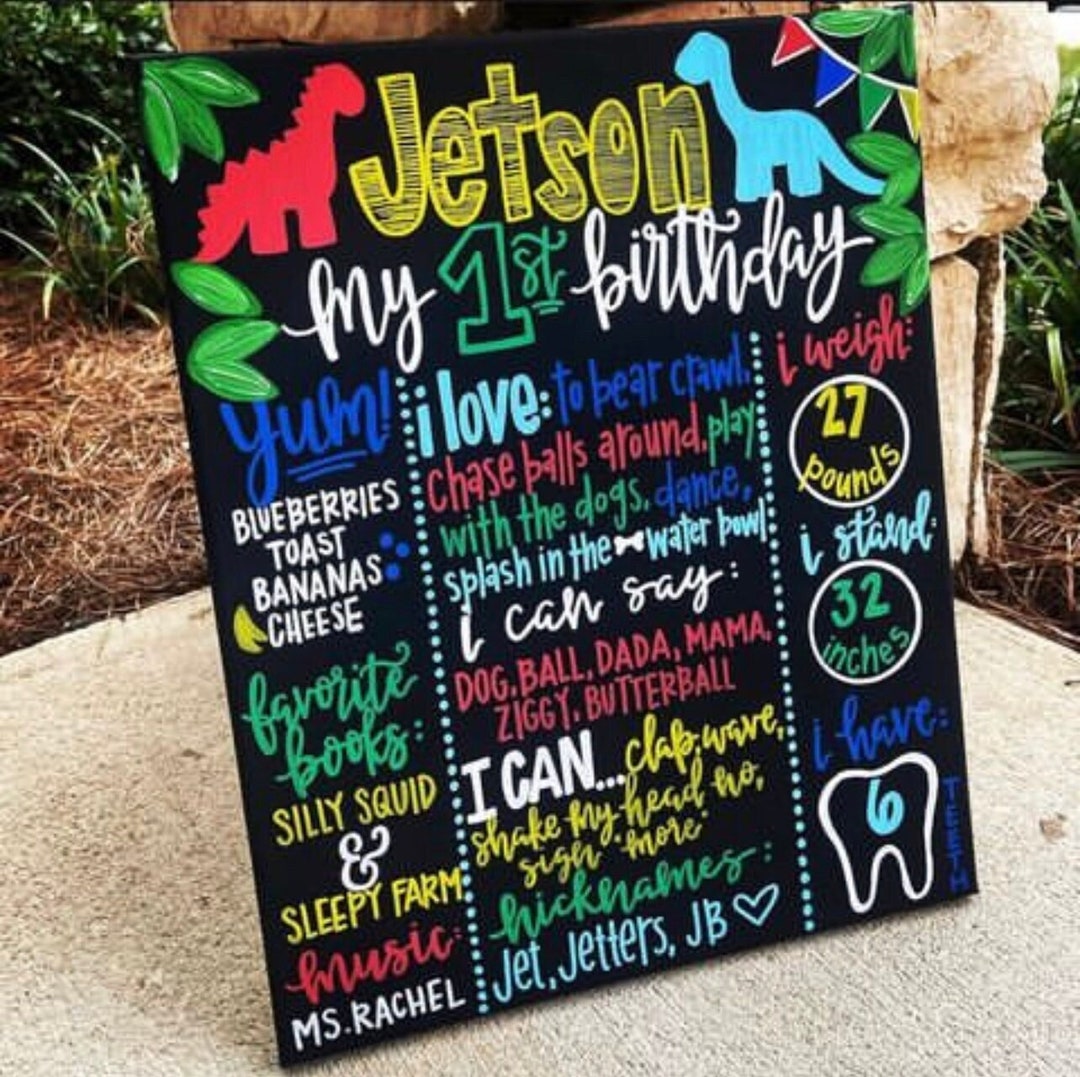 Jetson
my 1st birthday
yum!
BLUEBERRIES
TOAST
BANANAS
CHEESE
favorite
books:
SILLY SQUID
&
SLEEPY FARM
music:
MS. RACHEL
i love: to bear crawl,
chase balls around, play
with the dogs, dance,
splash in the water bowl
i can say:
DOG, BALL, DADA, MAMA,
ZIGGY, BUTTERBALL
I CAN... clap, wave,
shake my head no,
sign "more"
nicknames:
Jet, Jetters, JB
i weigh:
27
pounds
i stand:
32
inches
i have:
6
TEETH